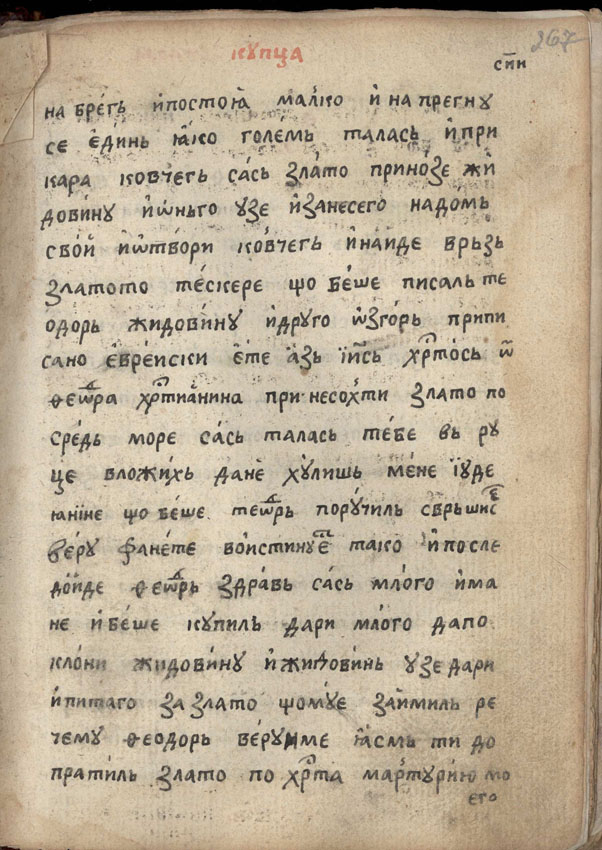 кꙋпца
267
сн҃и
на бре́гь и҆постоꙗ҆ ма́лко и҆ на прегнꙋ
се е҆ди́нь ꙗ҆ко голе́мь таласъ и҆ при
кара ковчегь са́сь ѕла́то прино́ѕе жи҆
дови́нꙋ и҆ѡ҆нъго ꙋзе и҆занесего на домъ
свои҆ и҆ѿтвори ковчегь и҆наиде врьзь
ѕлатото те́скере що бе́ше писаль те
одорь жидови́нꙋ и҆дрꙋго ѡ҆зго́рь припи
сано е҆вре́иски е҆те а҆зь і҆и҃сь хрⷭ҇то́сь ѿ
ѳеѡⷣра хрⷭ҇тиꙗнина при несохти ѕлато по
сре́дь море са́сь таласъ те́бе вь рꙋ
це вложи́хь дане хꙋлишь ме́не і҆ꙋде
ꙗнине що бе́ше теѡⷣрь порꙋ́чиль сврьшисе
ве́рꙋ фане́те вои́стинꙋ тако и҆после
до́иде ѳеѡⷣрь здра́вь са́сь мло́го и҆ма
не и҆бе́ше кꙋпиль дари мло́го дапо
кло́ни жидовинꙋ и҆жидовинь ꙋзе дари
и҆питаго за ѕлато щомꙋе заи́миль ре
чемꙋ ѳеодорь ве́рꙋиме ꙗ҆смь ти до
пратиль ѕлато по хрⷭ҇та ма́ртꙋрию мо
его